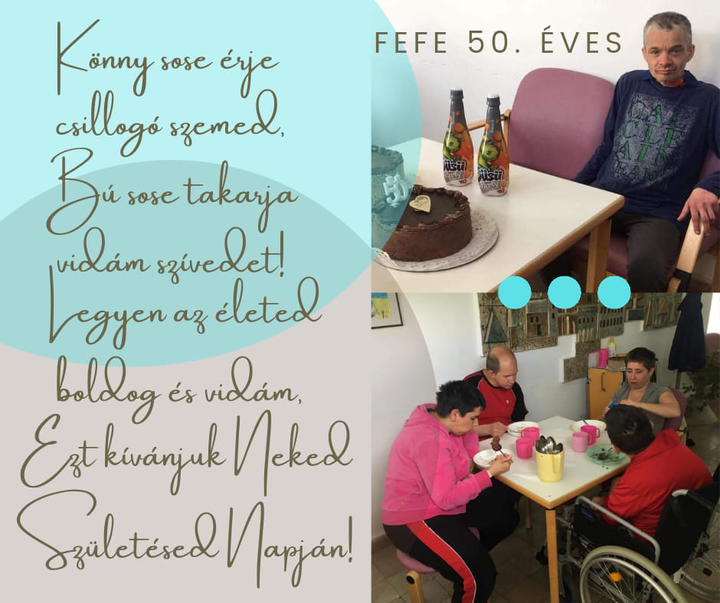 Könny sose érje
csillogó szemed,
Bú sose takarja
vidám szívedet!
Legyen az életed
boldog és vidám,
Ezt kívánjuk Neked
Születésed Napján!
FEFE 50. ÉVES
50